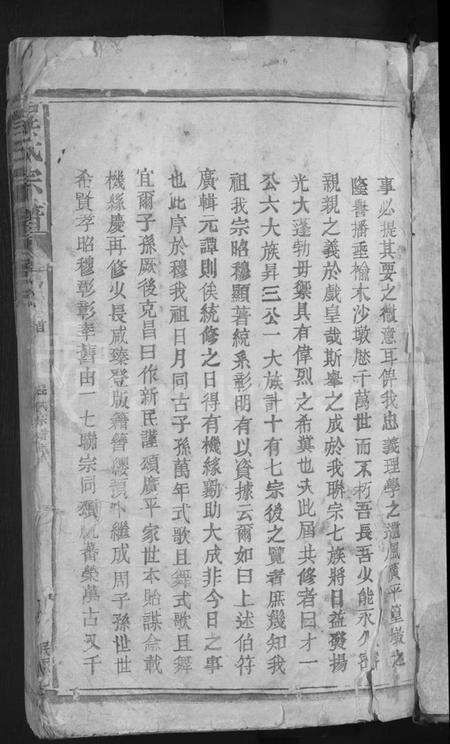 事必提其要之微意耳俾我忠義理學之遺風廣平墓墩之
隆譽播垂榆木沙墩歷千萬世而不朽吾長吾少能永久
親親之義於戲皇哉斯舉之成於我聯宗七族將日益發揚
光大蓬勃毋禦具有偉烈之希冀也夫此屆共修者曰才一
公六大族昇三公一大族計十有七宗後之覽者庶幾知我
祖我宗昭穆顯著統系彰明有以資據云爾如曰上述伯符
廣輯元譚則俟統修之日得有機緣勷助大成非今日之事
也此序於穆我祖日月同古子孫萬年式歌且舞式歌且舞
宜爾子孫厥後克昌曰作新民謹頌廣平家世本貽謀僉載
機緣慶再修少長咸臻登版籍簪纓 繼成周子孫世世
希賢孝昭穆彰彰率舊由一七聯宗同頌祝蕃榮萬古又千
宗譜
首